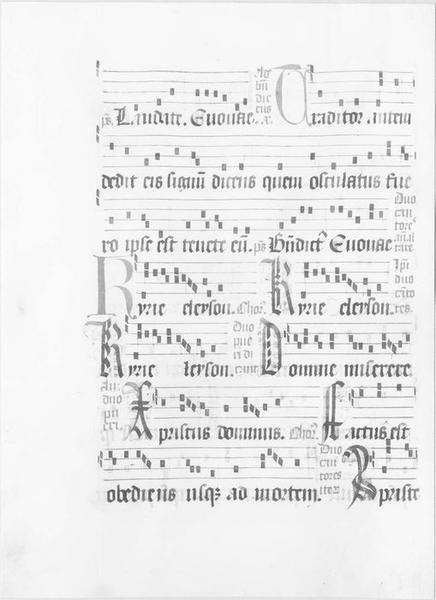 ps. Laudate. Euouae. Ad bn̄dictus. Traditor. autem
dedit eis signū dicens quem osculatus fue
ro ipse est tenete eū. ps Bn̄dict⁹ Euouae Duo cantores
Kyrie eleyson. Chor⁹. Kyrie eleyson. Ipi duo cātores.
Kyrie leyson. Duo pueri dicant Domine miserere
duo Xpristus dominus. Chor⁹. Factus est
obediens usqꝫ ad mortem. Duo cantores Xpriste